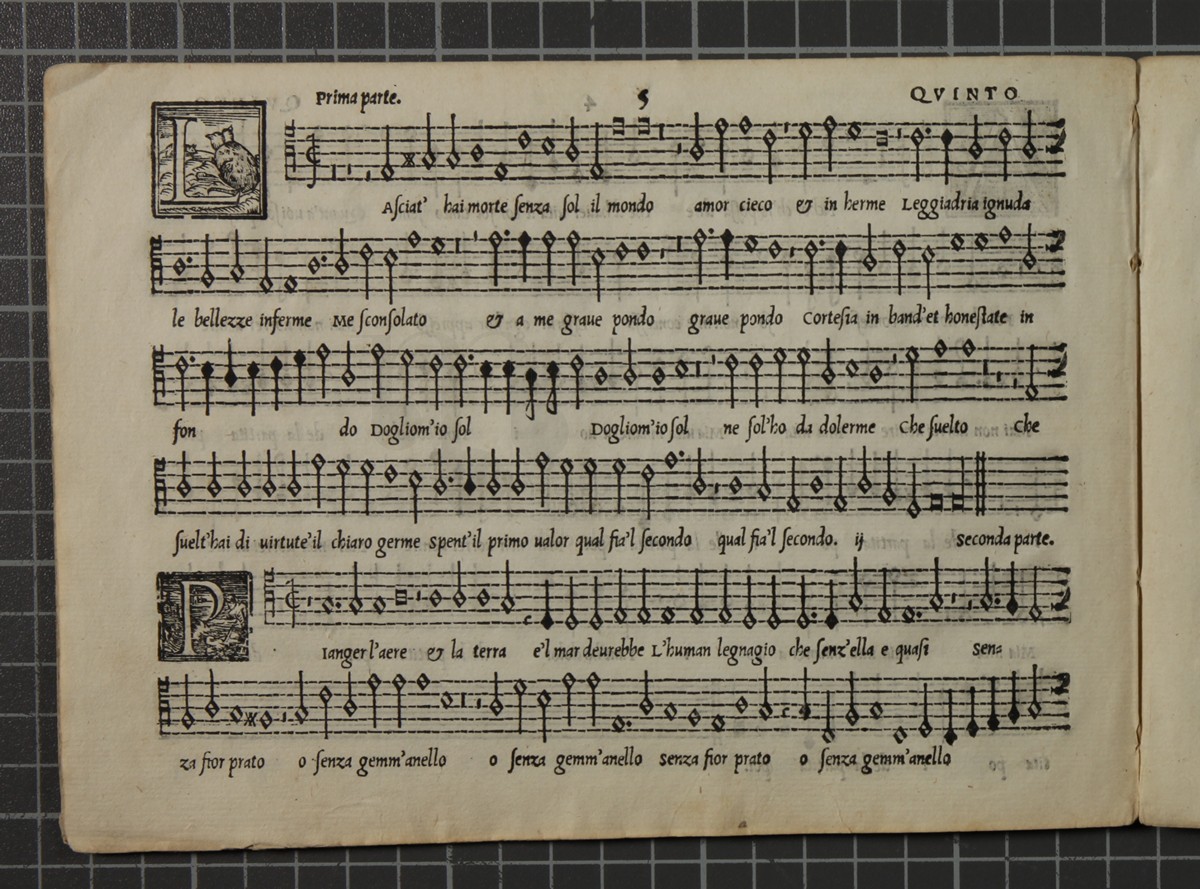 Prima parte. 5 QVINTO
LAsciat' hai morte senza sol il mondo amor cieco & in herme Leggiadria ignuda
le bellezze inferme Me sconsolato & a me graue pondo graue pondo Cortesia in band'et honestate in
fon do Dogliom'io sol Dogliom'io sol ne sol'ho da dolerme Che suelto Che
suelt'hai di uirtute'il chiaro germe Spent'il primo ualor qual fia'l secondo qual fia'l secondo. ij Seconda parte.
PIanger l'aere & la terra e'l mar deurebbe L'human legnagio che senz'ella e quasi Sen=
za fior prato o senza gemm'anello o senza gemm'anello Senza fior prato o senza gemm'anello